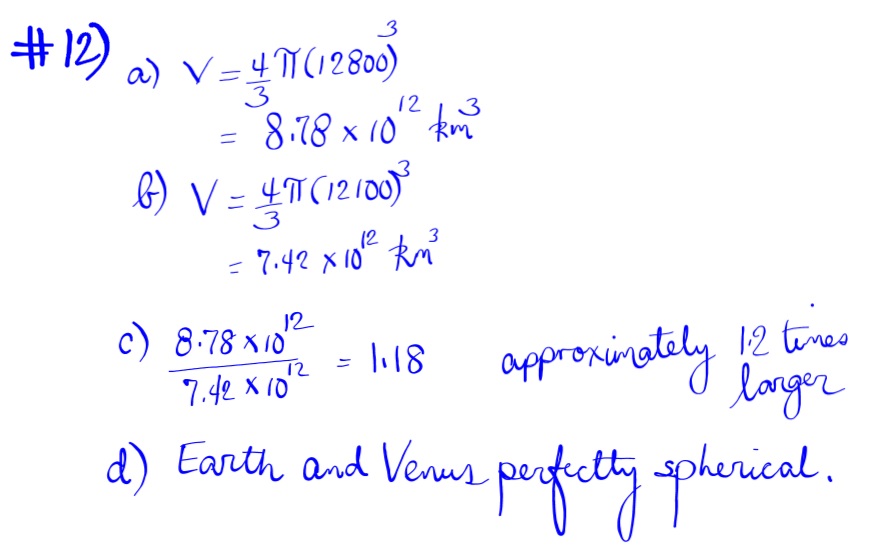 #12) a) V = 4/3 π(12800)³
= 8.78 × 10¹² km³
b) V = 4/3 π(12100)³
= 7.42 × 10¹² km³
c) 8.78 × 10¹² / 7.42 × 10¹² = 1.18 approximately 1.2 times larger
d) Earth and Venus perfectly spherical.